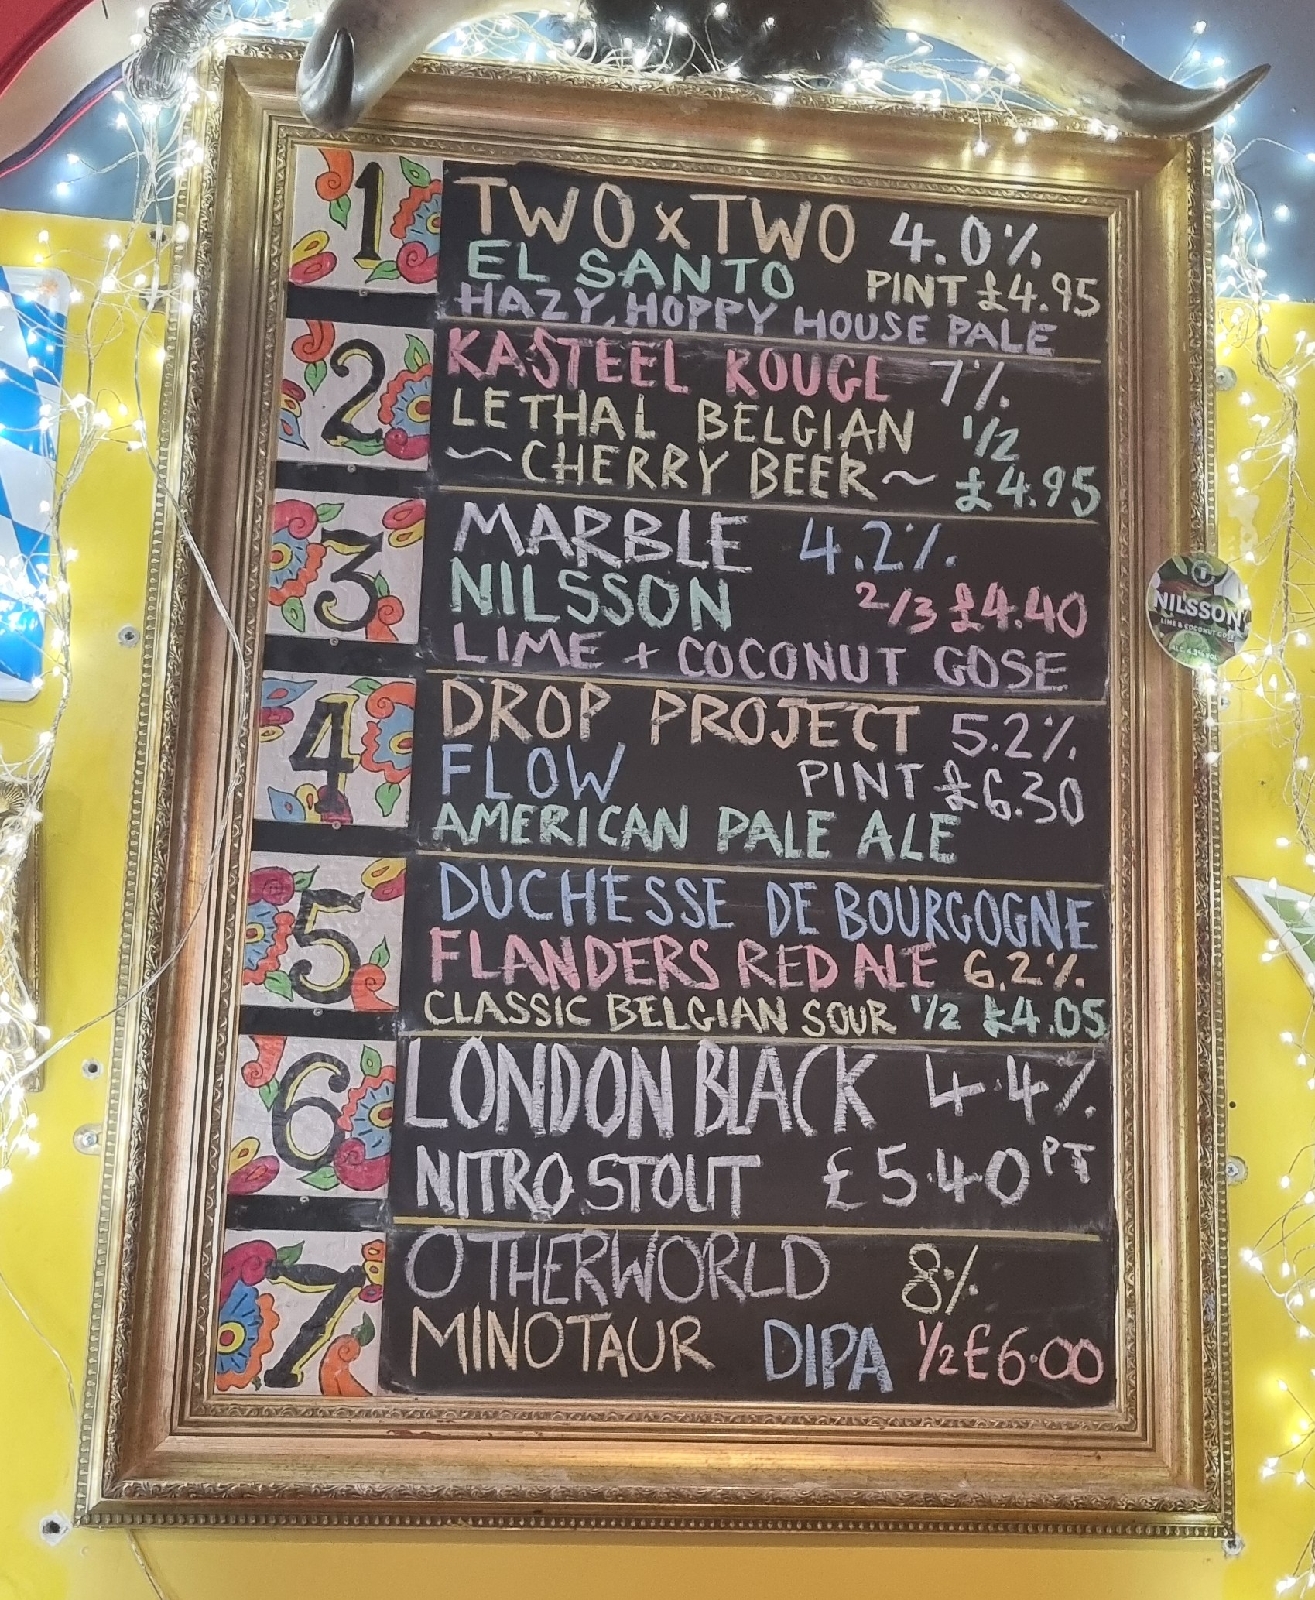 1 TWO x TWO 4.0%
EL SANTO PINT £4.95
HAZY, HOPPY HOUSE PALE
2 KASTEEL ROUGE 7%
LETHAL BELGIAN 1/2
~CHERRY BEER~ £4.95
3 MARBLE 4.2%
NILSSON 2/3 £4.40
LIME + COCONUT GOSE
NILSSON
LIME & COCONUT GOSE
4 DROP PROJECT 5.2%
FLOW PINT £6.30
AMERICAN PALE ALE
5 DUCHESSE DE BOURGOGNE
FLANDERS RED ALE 6.2%
CLASSIC BELGIAN SOUR 1/2 £4.05
6 LONDON BLACK 4.4%
NITRO STOUT £5.40 PT
7 OTHERWORLD 8%
MINOTAUR DIPA 1/2 £6.00